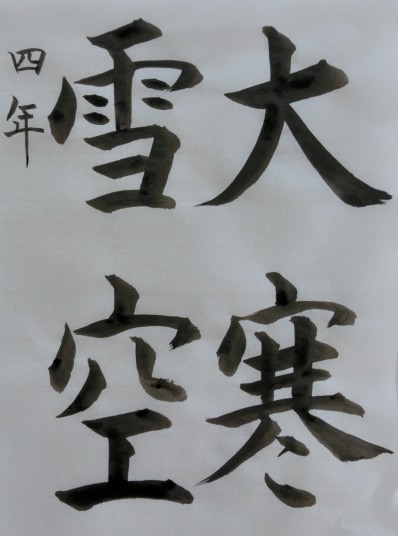 大寒
雪空
四年